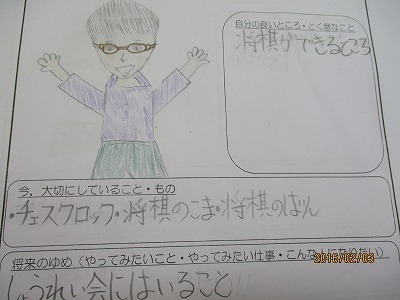 自分の良いところ・とく意なこと
将棋ができるところ
今、大切にしていること・もの
・チェスクロック・将棋のこま・将棋のばん
将来のゆめ（やってみたいこと・やってみたい仕事・こんな人になりたい）
しょうれい会にはいること!!
2016/02/03